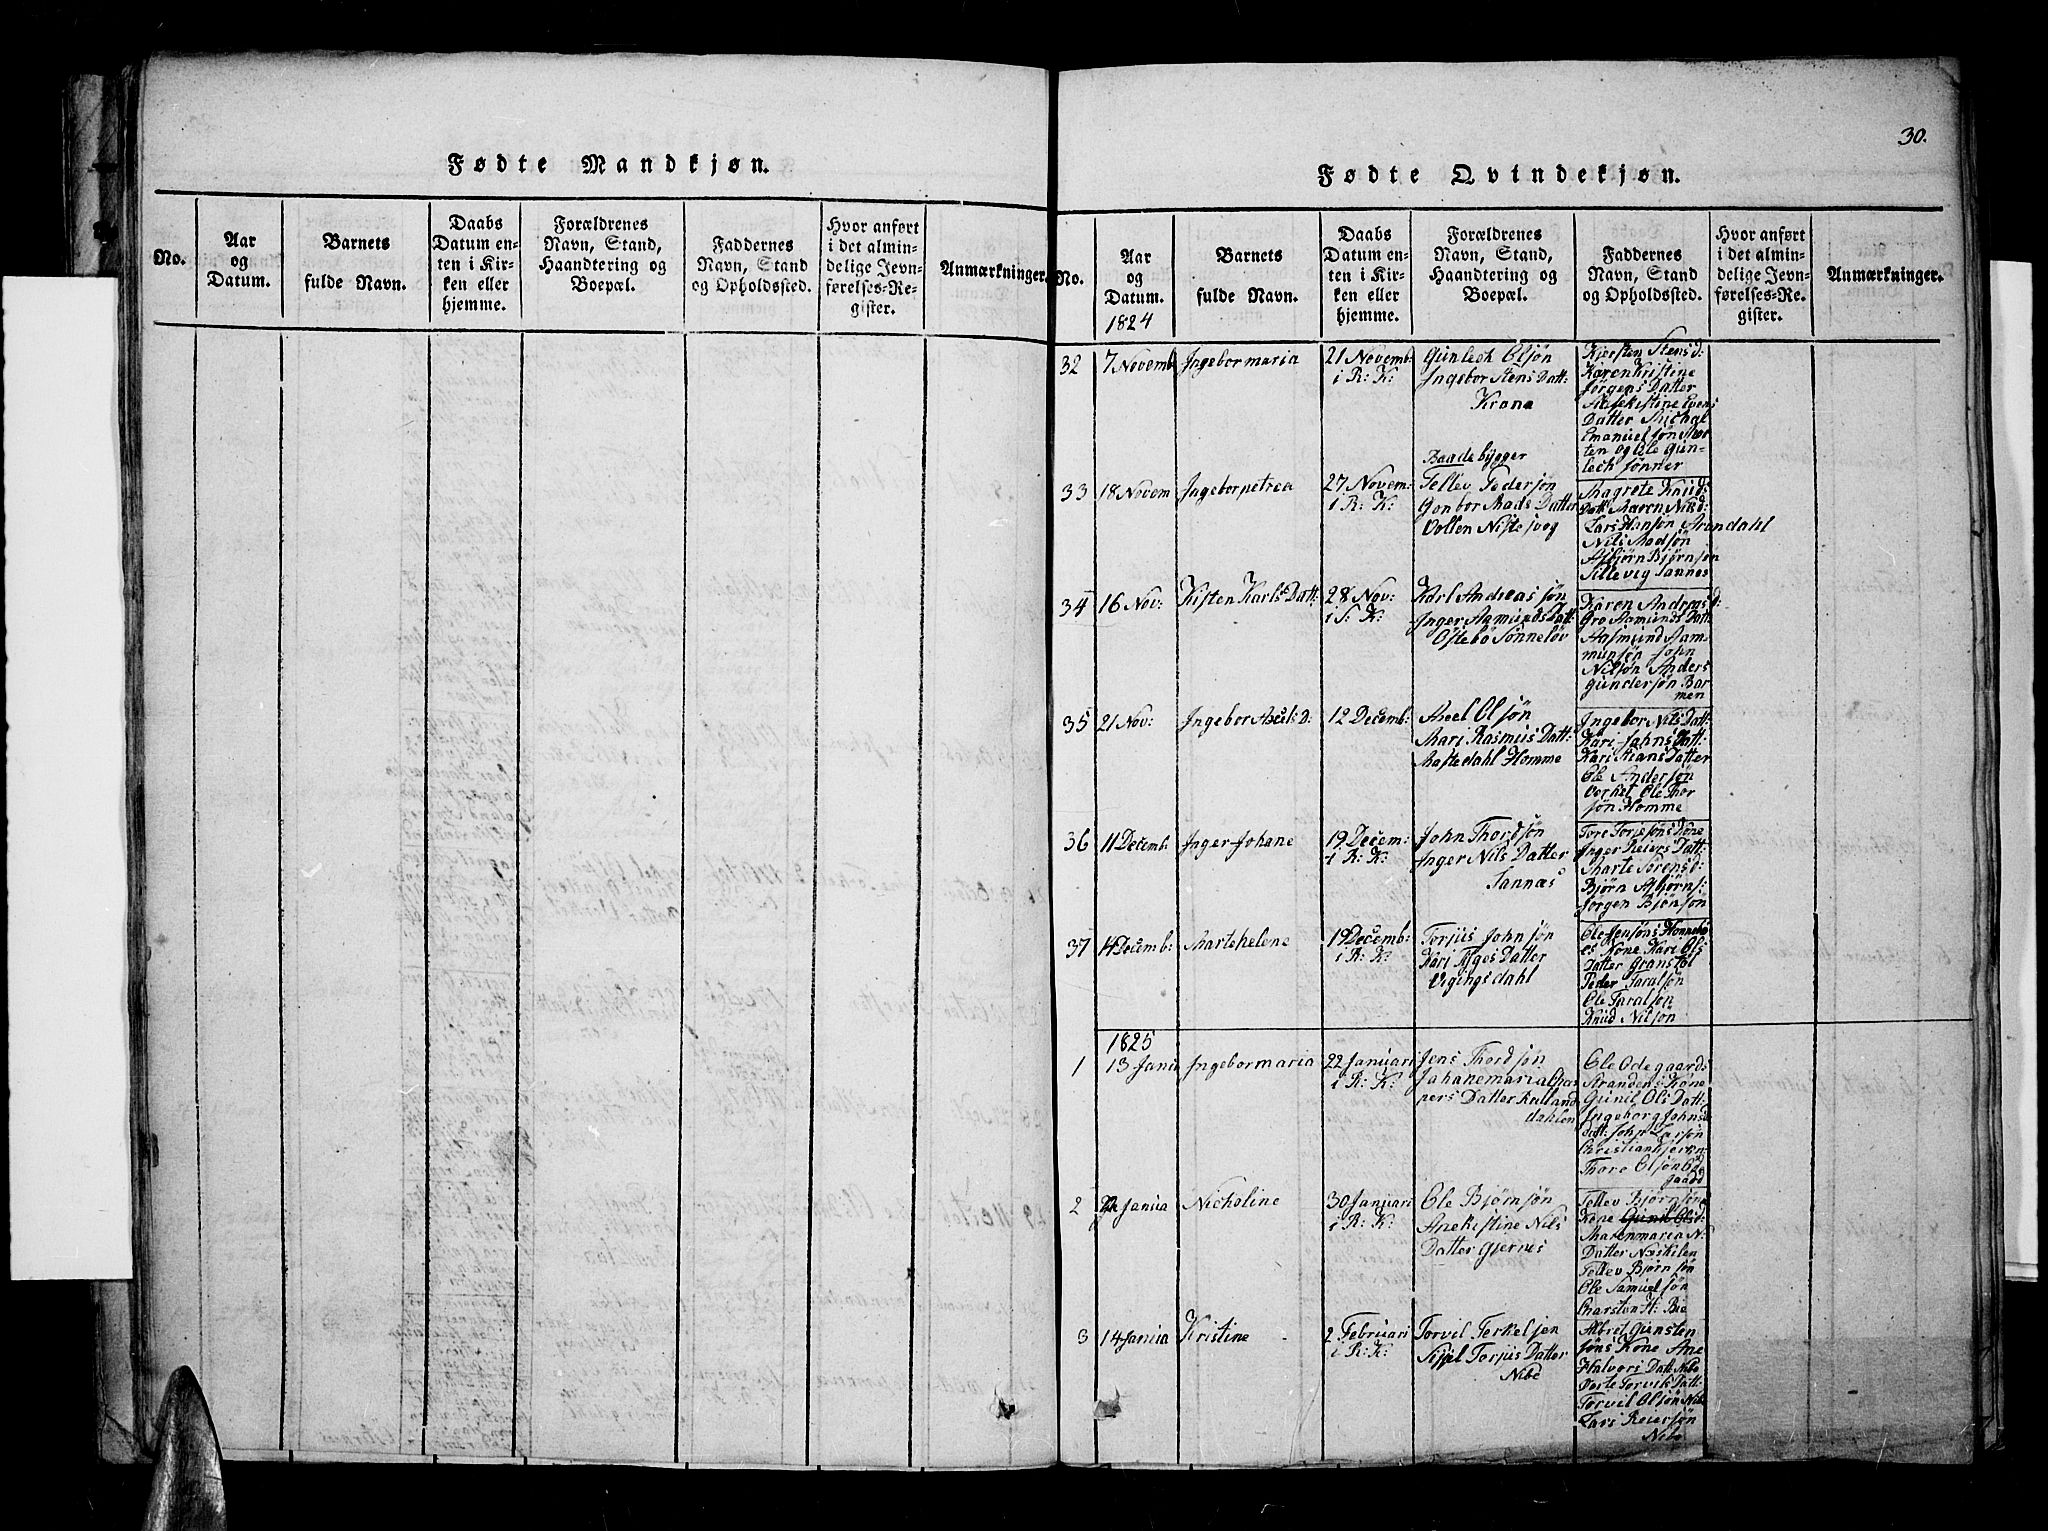 30.
Fødte Mandkjøn.
No.
Aar
og
Datum.
Barnets
fulde Navn.
Daabs
Datum en-
ten i Kir-
ken eller
hjemme.
Forældrenes
Navn, Stand,
Haandtering og
Boepæl.
Faddernes
Navn, Stand
og Opholdssted.
Hvor anført
i det almin-
delige Jevn-
førelses-Re-
gister.
Anmærkninger.
Fødte Qvindekjøn.
No.
Aar
og
Datum.
1824
Barnets
fulde Navn.
Daabs
Datum en-
ten i Kir-
ken eller
hjemme.
Forældrenes
Navn, Stand,
Haandtering og
Boepæl.
Faddernes
Navn, Stand
og Opholdssted.
Hvor anført
i det almin-
delige Jevn-
førelses-Re-
gister.
Anmærkninger.
32
7 Novemb
Ingebormaria
21 Novemb:
i R: K:
Gunlech Olsøn
Ingebor Stens Datt:
Krone
Baadebygger
Kjersten Stensd:
Karenkristine
Jørgens Datter
Datter Michal
Emanuelsøn Mor
ten og Ole Gun-
lech sønner
33
18 Novem
Ingeborpetrea
27 Novem:
i R: K:
Tellev Pedersøn
Gonbor Mads Datter
Magrete Knuds
Datt: Maren Nilsd:
Lars Hansøn Arendahl
Nils Madsøn
Asbjørn Bjørnsøn
Sillevig Sannes
34
16 Nov:
Kisten Karls Datt:
28 Nov:
i S: K:
Karl Andreas søn
Inger Aamunds Datt:
Ostebø Sønneløv
Karen Andreasd:
Gro Aamunds Datt
Aasmund Aam
munsøn John
Nilsøn Anders
Gundersøn Bar
men
35
21 Nov:
Ingebor Axels D:
12 Decemb:
Axel Olsøn
Mari Rasmus Datt:
Mastedahl Homme
Ingebor Nils Datt:
Kari Johns Datt:
Kari Mans Datter
Ole Andersøn
Vorhet Ole Thor
søn Homme
36
11 Decemb
Inger Johane
19 Decem:
i R: K:
John Thordsøn
Inger Nils Datter
Sannæs
Tore Torjesøns Kone
Inger Reiers Datt:
Marte Sørensd:
Bjørn Asbjørns:
Jørgen Bjønsøn
37
14 Decemb:
Martehelene
19 Decemb:
i R: K:
Torjus Johnsøn
Kari Ages Datter
Vigingsdahl
Ole Jensøns Honnebø
es Kone Kari Ols
Datter Granstøl
Peder Taralsøn
Ole Taralsøn
Knud Nilsøn
1825
1
13 Janua
Ingebormaria
22 Januari
i R: K:
Jens Thordsøn
Johanemaria Chas
pers Datter Kulland
dahlen
Ole Odegaards
Strandens Kone
Gunil Ols Datt:
Ingeborg Johns
datt: John Larsøn
Thore Olsøn Od
gaard
2
22 Janua
Nicholine
30 Januari
i R: K:
Ole Bjørnsøn
Anekistine Nils
Datter Gjernes
Tellev Bjørnsøns
Kone Gunil Olsd:
Marenmaria N:
Datter Næskelen
Tellev Bjørnsøn
Ole Samuelsøn
Charsten H: Bie
3
14 Janua
Kristine
2 Februari
i R: K:
Torvil Terkelsen
Sissel Torjus Datter
Nibe
Albret Gunsten
søns Kone Ane
Halvors Datt Nibe
Dorte Torvils Datt:
Torvil Olsøn Nibe
Lars Reiersøn
Nibe